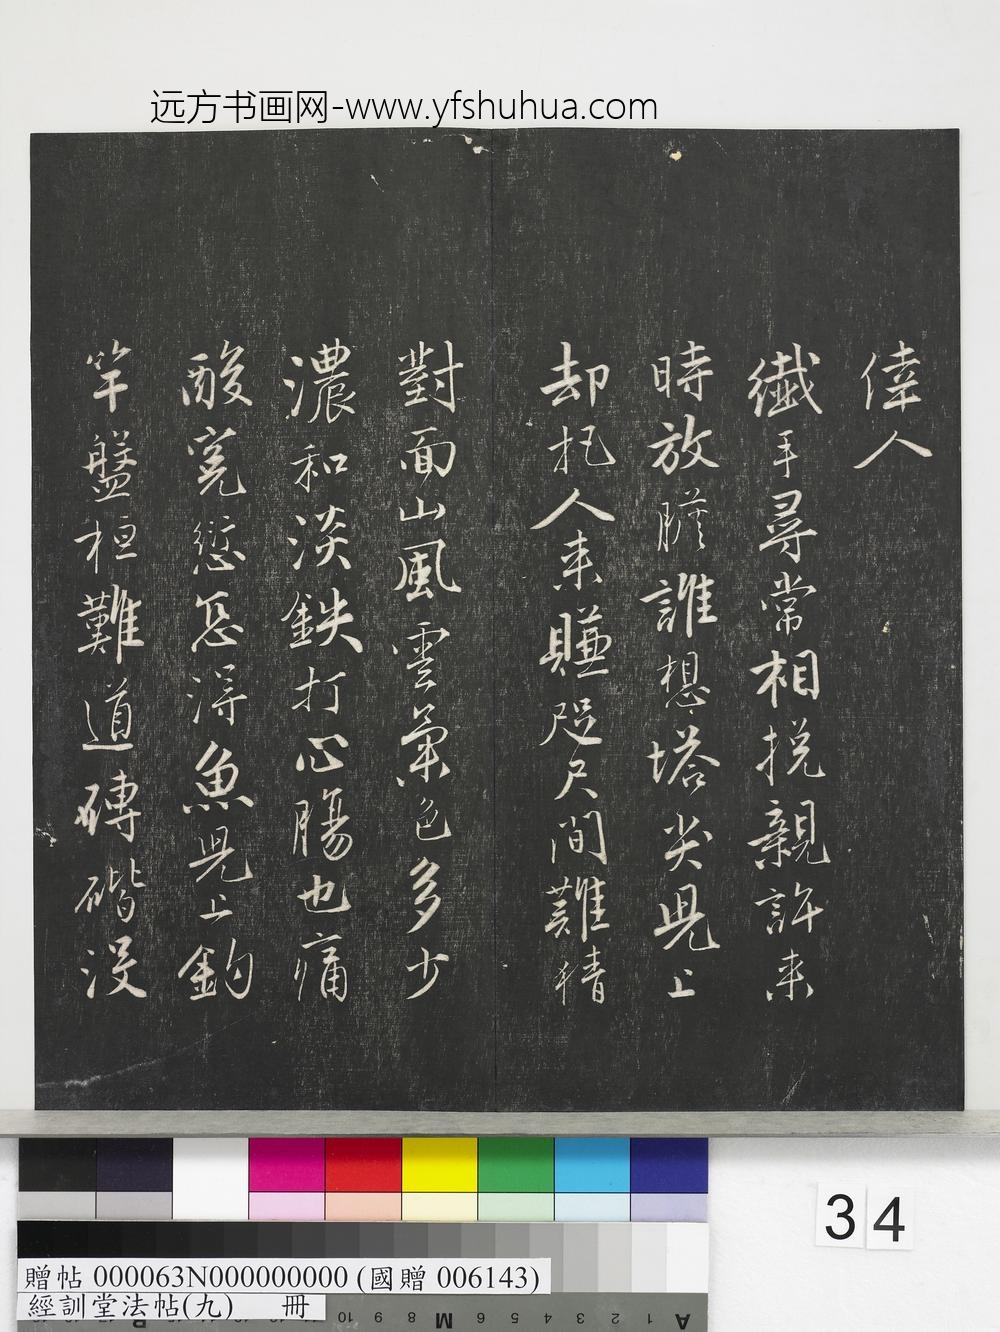 远方书画网-www.yfshuhua.com
倖人
纖手尋常相挽親許來
時放膽誰想塔尖見上
却把人來賺咫尺間難猜
對面山風雲氣色多少
濃和淡鉄打心腸也痛
酸寃愆怎得魚兒上釣
竿盤桓難道磚階没
34
贈帖 000063N000000000 (國贈 006143)
經訓堂法帖(九) 冊
10 9 8 M 6 5 4 3 2 1 A